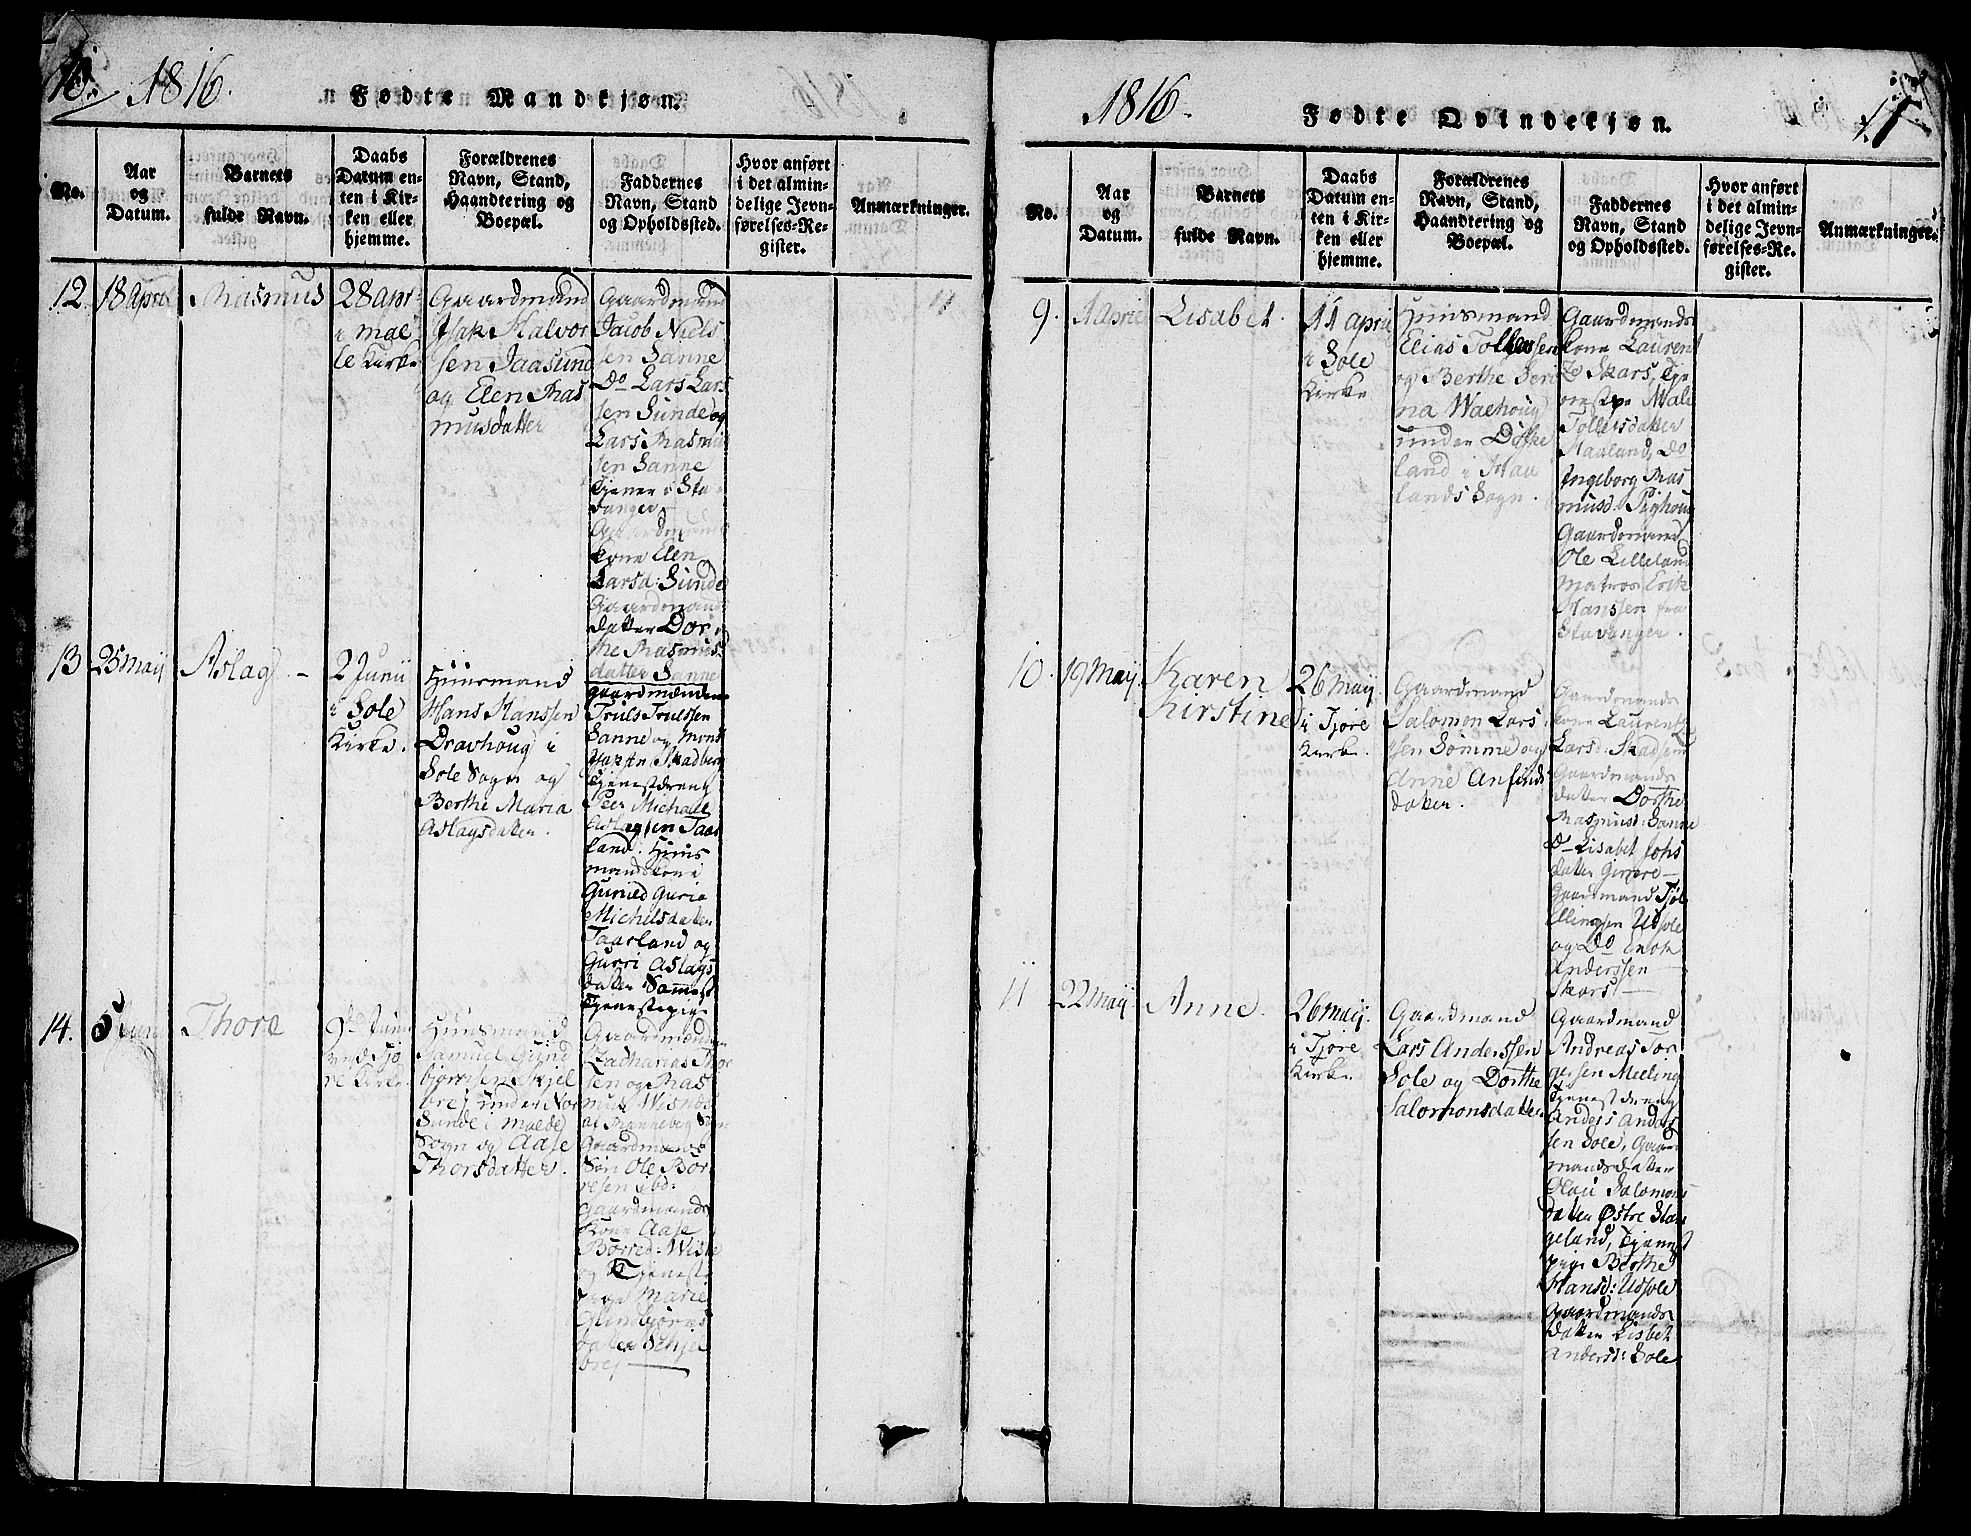 10.
1816.
Fødte Mandkjøn.
No.
Aar
og
Datum.
Barnets
fulde Navn.
Daabs
Datum en-
ten i Kir-
ken eller
hjemme.
Forældrenes
Navn, Stand,
Haandtering og
Boepæl.
Faddernes
Navn, Stand
og Opholdssted.
Hvor anført
i det almin-
delige Jevn-
førelses-Re-
gister.
Anmærkninger.
12.
18 April
Rasmus
28 Apr:
i Mal
le Kirke
Gaardmand
Isak Halvor
sen Jaasund
og Elen Ras
musdatter
Gaardmand
Jacob Niels
sen Sanne
Do Lars Lars
sen Sunde og
Lars Rasmus
sen Sanne
Tjener i Sta
vanger
Gaardmands
Kone Elen
Larsd: Sunde
Gaardmands
datter Dor
the Rasmus
datter Sanne
13
25 May
Aslag
2 Junii
i Sole
Kirke.
Huusmand
Hans Hanssen
Dravhoug i
Sole Sogn og
Berthe Maria
Aslagsdatter.
Gaardmændene
Truls Trulssen
Sanne og
Skadberg
Tjenestdreng
Peer Michael
Aslagsen Taar
land. Huus
mandskone
Gunild Guria
Michelsdatter
Taarland og
Gurri Aslags
datter Sømme
Tjenestepige
14.
5 Juni
Thore
9de Junii
ved Tjo
re Kirke
Huusmand
Samuel Gund
bjørnsen Skjel
brej under Nor
Sunde i Malde
Sogn og Aase
Thorsdatter.
Gaardmændene
Zacharias Thor
sen og Ras
mus Wisnes
Gaardmands
Søn Ole Bor
resen ibd:
Gaardmands
Kone Aase
Borred: Wiste
og Tjeneste
pige Marie
Gundbjørns
datter Schjel
brej
1816.
Fødte Qvindekjøn.
17
No.
Aar
og
Datum.
Barnets
fulde Navn.
Daabs
Datum en-
ten i Kir-
ken eller
hjemme.
Forældrenes
Navn, Stand,
Haandtering og
Boepæl.
Faddernes
Navn, Stand
og Opholdssted.
Hvor anført
i det almin-
delige Jevn-
førelses-Re-
gister.
Anmærkninger.
9.
1 April
Lisabet.
11 April
i Sole
Kirke
Huusmand
Elias Tollefsen
og Berthe Seri
na Waehoug
under Dyske
land i Haa
lands Sogn.
Gaardmands
kone Laurent
Ze Skars, Tje
nestpe Male
Tollefsdatter
Haaland, Do
Ingeborg Ras
musd:
Gaardmand
Ole Lilleland
Matros Erik
Hanssen fra
Stavanger.
10.
19 May
Karen
Kirstine
26 May
i Tjore
Kirke.
Gaardmand
Salomon Lars
sen Sømme og
Anne Anfinds
datter.
Gaardmands
Kone Laurentze
Larsd:
Gaardmands
datter Dorthe
Rasmusd: Sanne
Do Lisabet Johs
datter Gimre
Gaardmand
Ellingsen Udsole
og Do Enok
Anderssen
Skars
11
22 May
Anne.
26 May.
i Tjore
Kirke
Gaardmand
Lars Anderssen
Sole og Dorthe
Salomonsdatter
Gaardmand
Andreas Tor
gersen Meling
Tjenestdreng
Anders Anders
sen Sole, Gaard
mandsdatter
Olau Salomons
datter Østre Sta
geland, Tjenest
pige Berthe
Hansd: Udsole
Gaardmands
datter Lisbet
Andersd: Sole